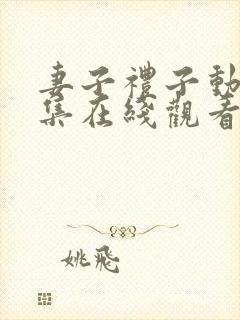 妻子禮子動
集在綫觀看
姚飛